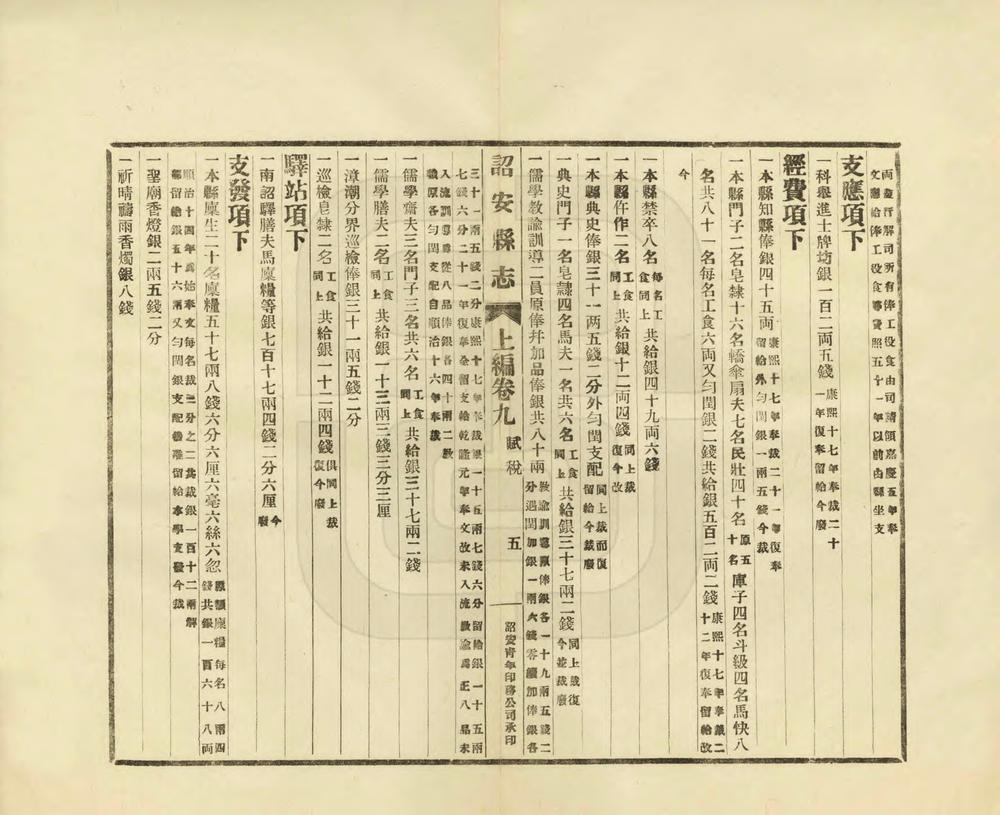 両盡行解司所有俸工役食由司請領嘉慶五年奉
文應給俸工役食等費照五十一年以前由縣坐支
支應項下
一科舉進士牌坊銀一百二両五錢康熙十七年奉裁二十
一年復奉留給今廢
經費項下
一本縣知縣俸銀四十五両康熙十七年奉裁二十一年復奉
留給外勻閏銀一兩五錢今裁
一本縣門子二名皂隸十六名轎傘扇夫七名民壯四十名原五
十名庫子四名斗級四名馬快八
名共八十一名每名工食六両又勻閏銀二錢共給銀五百二両二錢康熙十七年奉裁二
十二年復奉留給改
今
一本縣禁卒八名每名工
食同上共給銀四十九両六錢
一本縣仵作二名工食
同上共給銀十二両四錢同上裁
復今改
一本縣典史俸銀三十一両五錢二分外勻閏支配同上裁而復
留給今裁廢
一典史門子一名皂隸四名馬夫一名共六名工食
同上共給銀三十七兩二錢同上裁復
今並裁廢
一儒學教諭訓導二員原俸幷加品俸銀共八十兩教諭訓導原俸銀各一十九兩五錢二
分遇閏加銀一兩六錢零續加俸銀各
詔安縣志
上編卷九
賦稅
五
詔安青年印務公司承印
三十一兩五錢二分康熙十七年奉裁銀一十五兩七錢六分留給銀一十五兩
七錢六分二十一年復奉全留支給乾隆元年奉文改未入流教諭爲正八品未
入流訓導爲從八品俸銀各四十兩二款
裁原各勻閏支配自順治十六年奉裁
一儒學齋夫三名門子三名共六名工食
同上共給銀三十七兩二錢
一儒學膳夫二名工食
同上共給銀一十三兩三錢三分三厘
一漳潮分界巡檢俸銀三十一兩五錢二分
一巡檢皂隸二名工食
同上共給銀一十二兩四錢俱同上裁
復今廢
驛站項下
一南詔驛膳夫馬廩糧等銀七百十七兩四錢二分六厘今
廢
支發項下
一本縣廩生二十名廩糧五十七兩八錢六分六厘六毫六絲六忽原額廩糧每名八兩四
錢共銀一百六十八両
順治十四年爲始奉文每名裁三分之二共裁銀一百十二兩解
部留給銀五十六兩又勻閏銀支配機廰留給本學支發今裁
一聖廟香燈銀二兩五錢二分
一祈晴禱雨香燭銀八錢